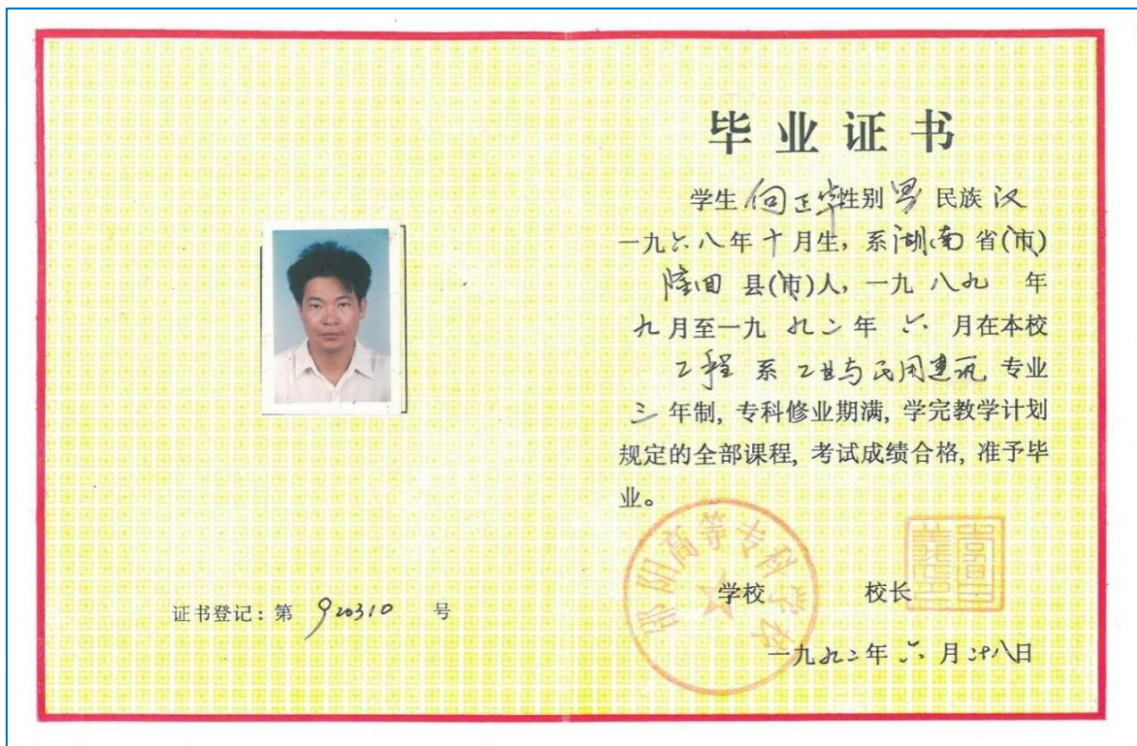 毕业证书
学生 向正华 性别 男 民族 汉
一九六八年十月生，系湖南省(市)
隆回 县(市)人，一九八九 年
九月至一九九二年 六 月在本校
工程 系 工业与民用建筑 专业
三年制，专科修业期满，学完教学计划
规定的全部课程，考试成绩合格，准予毕
业。
邵阳高等专科学校
学校 校长
一九九二年 六 月二十八日
证书登记：第 920310 号